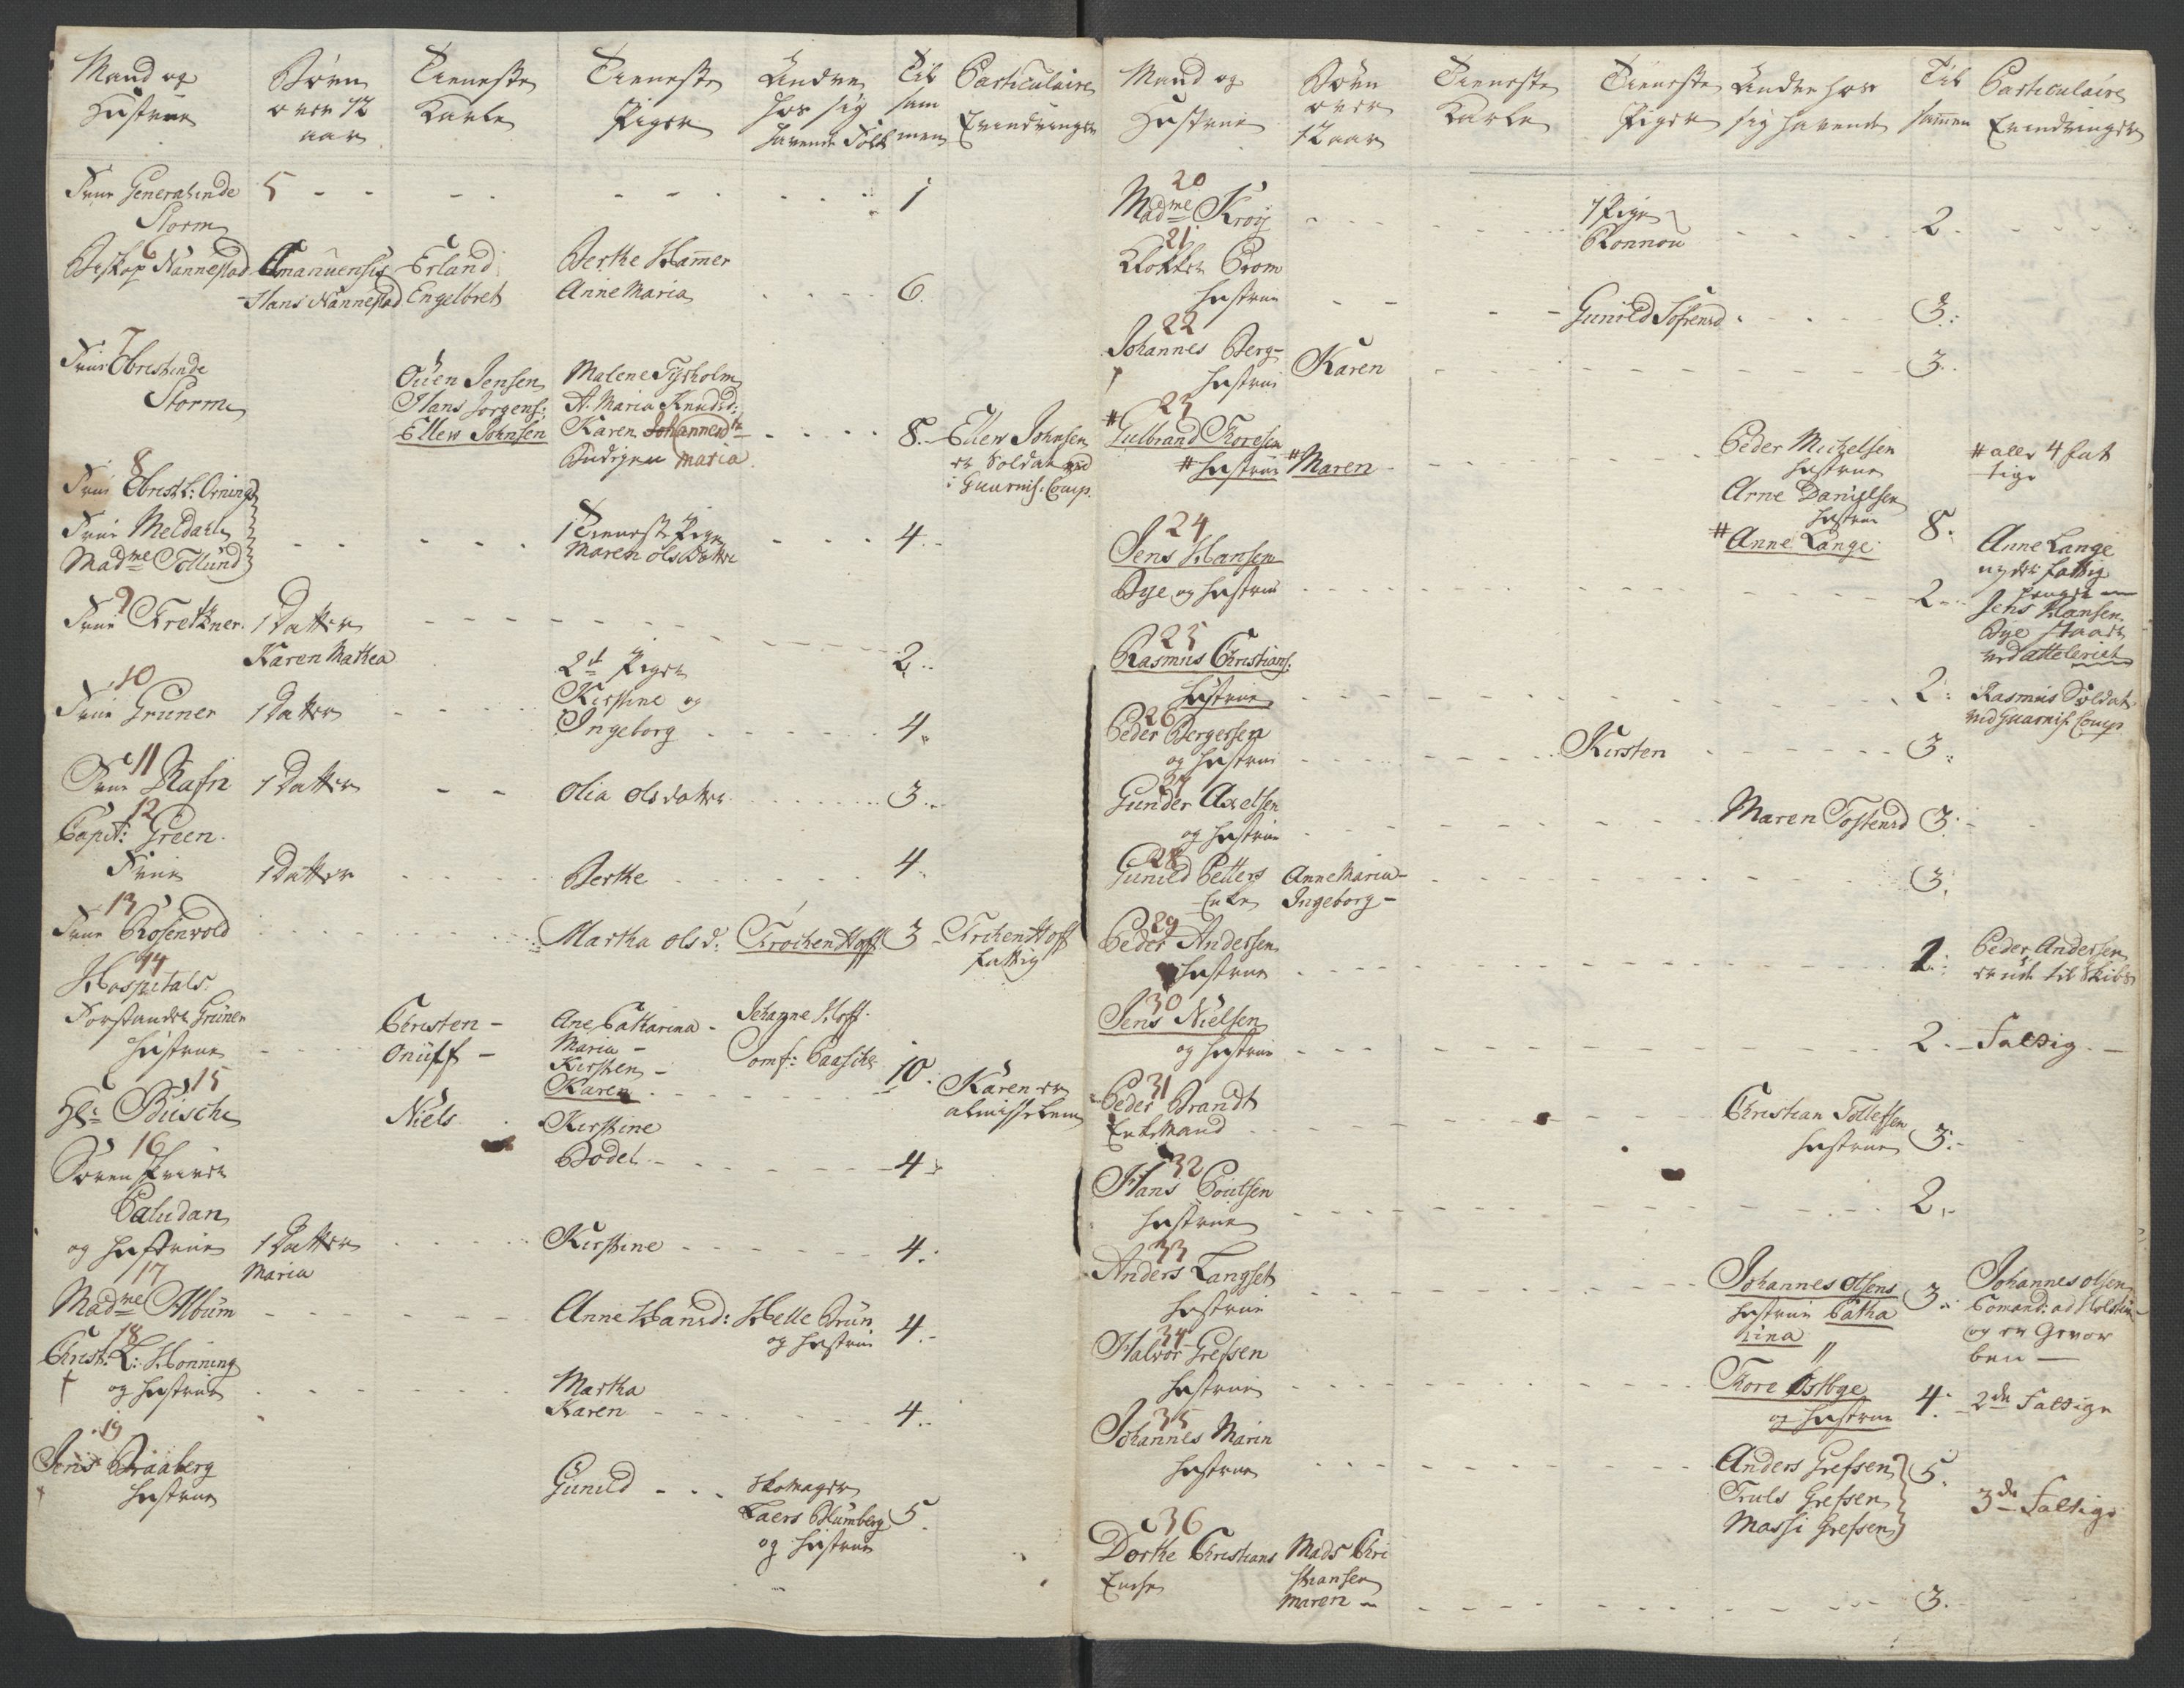 Mand og Hustrue | Børn over 12 aar | Tieneste Karle | Tieneste Piger | Andre hos sig havende Folk | Til sammen | Particulaire Erindringer
5
Frue Generalinde - - - - - - 1
Storm
6
Biskop Nannestad | Amanuensis | Erland | Berthe Hammer
Hans Nannestad | Engelbret | Anne Maria - - - 6
7
Frue Obrestinde
Storm | Ouen Jensen | Malene Tyrholm
Hans Jorgens: | A. Maria Knudsd:
Ellew Johnsen | Karen Johannesd - - - 8. | Ellew Johnsen
Budigen Maria | er Soldat ved
Guarnis: Comp.
8
Frue Obrestl: Orning
Frue Meldahl | 1 Tieneste Pige - - - 4
Madme Tollund | Maren Olsdatter
9
Frue Fretzner | 1 Datter - - -
Karen Mathea | 2.
10 | 2de Piger
Kirstine og
Frue Gruner | 1 Datter - - - | Ingeborg - - - 4
11
Frue Rafn | 1 Datter - - | Olia Olsdatter - - - 3
12
Capit: Green
Frue | 1 Datter - - - | Berthe - - - 4
13
Frue Rosenvold - - - | Martha Olsd: | Trochen Hoff | 3 | Trchen Hoff
fattig
14
Hospitals
Forstander Gruner | Christen - | Ane Catharina - | Johanne Hoff
Hustrue - - | Onuff - | Maria - | Comf: Paasche
Kirsten - | 10.
Karen - - - | Karen er
almisselem
15
Hr: Busch | Niels | Kirstine
Bodel - - - 4
16
Sorenskriver
Paludan
og Hustrue | 1 Datter - - - | Kirstine - - - 4.
Maria
17
Madme Album - - - | Anne Hansd: | Helle Brun
og Hustrue | 4.
18
Christ: L: Honning
† og Hustrue - - - | Martha
Karen - - - 4.
19
Jens Braaberg | Gunild - - - | Skomager
† Hustrue | Laers Blumberg | 5.
og Hustrue
Mand og Hustrue | Børn over 12 aar | Tieneste Karle | Tieneste Piger | Andre hos sig havende | Til sammen | Particulaire Erindringer
20
Madme Kroy - - - | 1 Pige
Ronnou - - - 2.
21
Klokker Prom
Hustrue - - - | Gunild Tostensd. - - - 3.
22
Johannes Berg-
† Hustrue | Karen - - - 3.
23
# Gulbrand Thoresen | Peder Michelsen | # alle 4 fat
# Hustrue | # Maren - - - | Hustrue | tige
Arne Danielsen
Hustrue | 8.
# Anne Lange | Anne Lange
nyder fattig
penge
24
Jens Hansen
Bye og Hustrue - - - 2. | Jens Hansen
Bye staar
ved atteleriet
25
Rasmus Christians:
Hustrue - - - 2. | Rasmus Soldat
ved Guarnis: Comp
26
Peder Bergersen
og Hustrue - - - | Kirsten - - - 3.
27
Gunder Axelsen
og Hustrue - - - | Maren Tostensd | 3.
28
Gunild Petters | Anne Maria - - - 3.
Enke | Ingeborg -
29
Peder Andersen
Hustrue - - - 1. | Peder Andersen
er ude til Skibs
30
Jens Nielsen
og Hustrue - - - 2. | Fattig. -
31
Peder Brandt | Christian Tollefsen
Enkemand - - - | Hustrue | 3.
32
Hans Poulsen
Hustrue - - - 2.
33
Anders Langset | Johannes Olsens | 3. | Johannes Olsen
Hustrue - - - | Hustrue Catha | Comand: ad Holsten
rina | og er Gevor
ben -
34
Halvor Grefsen
Hustrue - - - | Tore Østbye | 4. | 2de Fattige
og Hustrue
35
Johannes Marin
Hustrue - - - | Anders Grefsen | 5.
Truls Grefsen | 3de Fattige
Massi Grefsen
36
Dorthe Christians | Mads Chri
Encke | stiansen
Maren - - - 3.